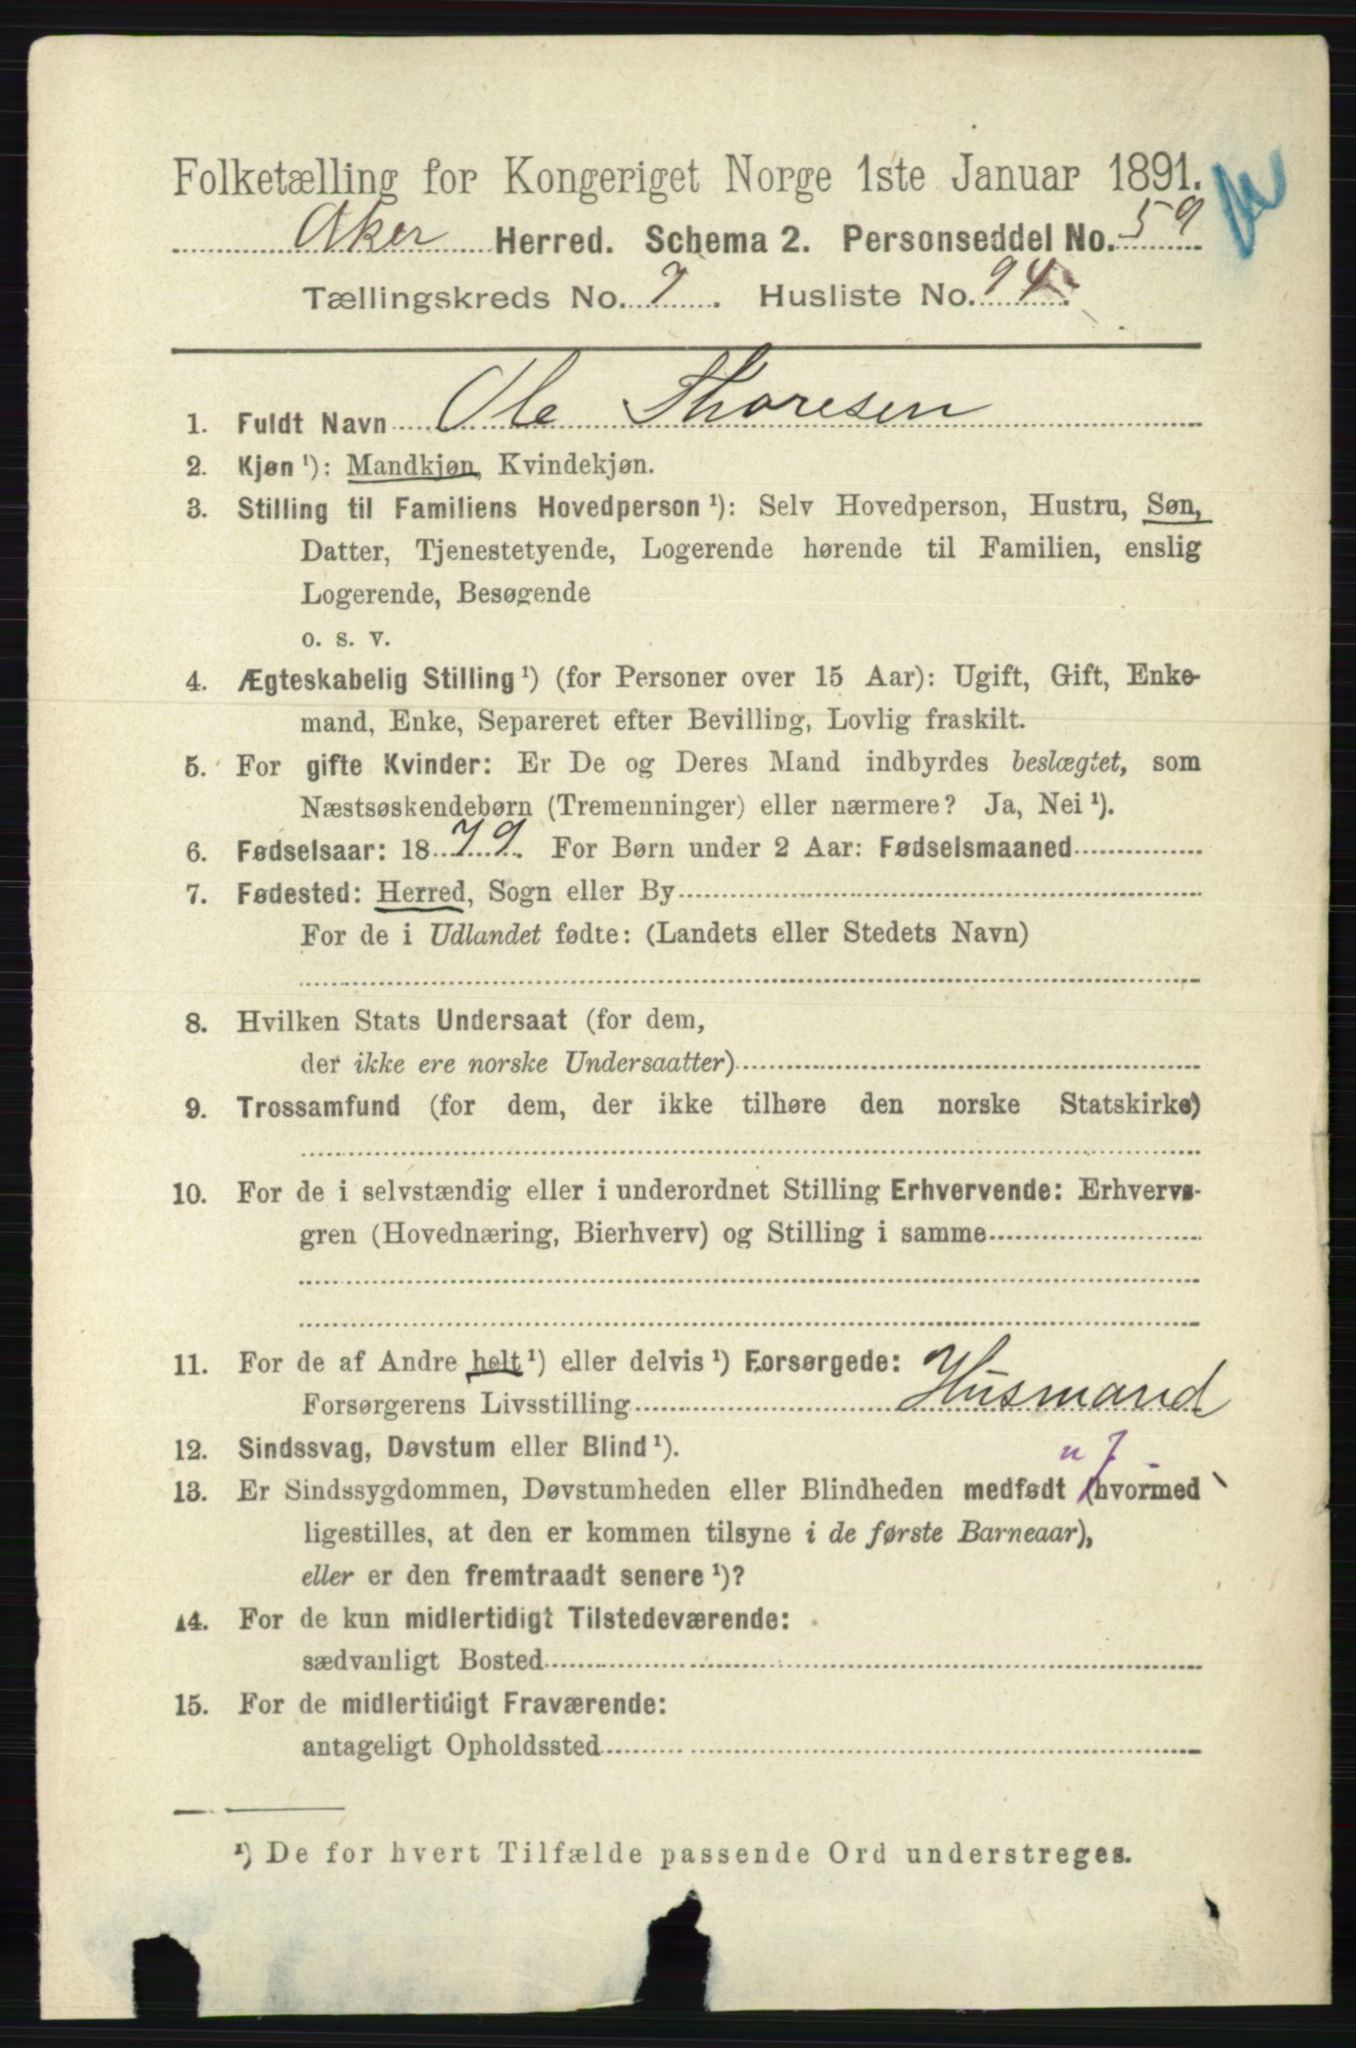 Folketælling for Kongeriget Norge 1ste Januar 1891.
Aker Herred. Schema 2. Personseddel No. 59
Tællingskreds No. 7. Husliste No. 94.
1. Fuldt Navn Ole Thoresen
2. Kjøn ¹): Mandkjøn, Kvindekjøn.
3. Stilling til Familiens Hovedperson ¹): Selv Hovedperson, Hustru, Søn,
Datter, Tjenestetyende, Logerende hørende til Familien, enslig
Logerende, Besøgende
o. s. v.
4. Ægteskabelig Stilling ¹) (for Personer over 15 Aar): Ugift, Gift, Enke-
mand, Enke, Separeret efter Bevilling, Lovlig fraskilt.
5. For gifte Kvinder: Er De og Deres Mand indbyrdes beslægtet, som
Næstsøskendebørn (Tremenninger) eller nærmere? Ja, Nei ¹).
6. Fødselsaar: 1879. For Børn under 2 Aar: Fødselsmaaned
7. Fødested: Herred, Sogn eller By
For de i Udlandet fødte: (Landets eller Stedets Navn)
8. Hvilken Stats Undersaat (for dem,
der ikke ere norske Undersaatter)
9. Trossamfund (for dem, der ikke tilhøre den norske Statskirke)
10. For de i selvstændig eller i underordnet Stilling Erhvervende: Erhvervs-
gren (Hovednæring, Bierhverv) og Stilling i samme
11. For de af Andre helt ¹) eller delvis ¹) Forsørgede:
Forsørgerens Livsstilling Husmand
12. Sindssvag, Døvstum eller Blind ¹).
13. Er Sindssygdommen, Døvstumheden eller Blindheden medfødt (hvormed
ligestilles, at den er kommen tilsyne i de første Barneaar),
eller er den fremtraadt senere ¹)?
14. For de kun midlertidigt Tilstedeværende:
sædvanligt Bosted
15. For de midlertidigt Fraværende:
antageligt Opholdssted
¹) De for hvert Tilfælde passende Ord understreges.